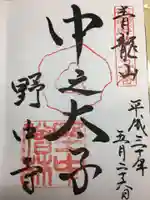 青龍山
平成三十年
五月二十六日
中之太子
野中寺